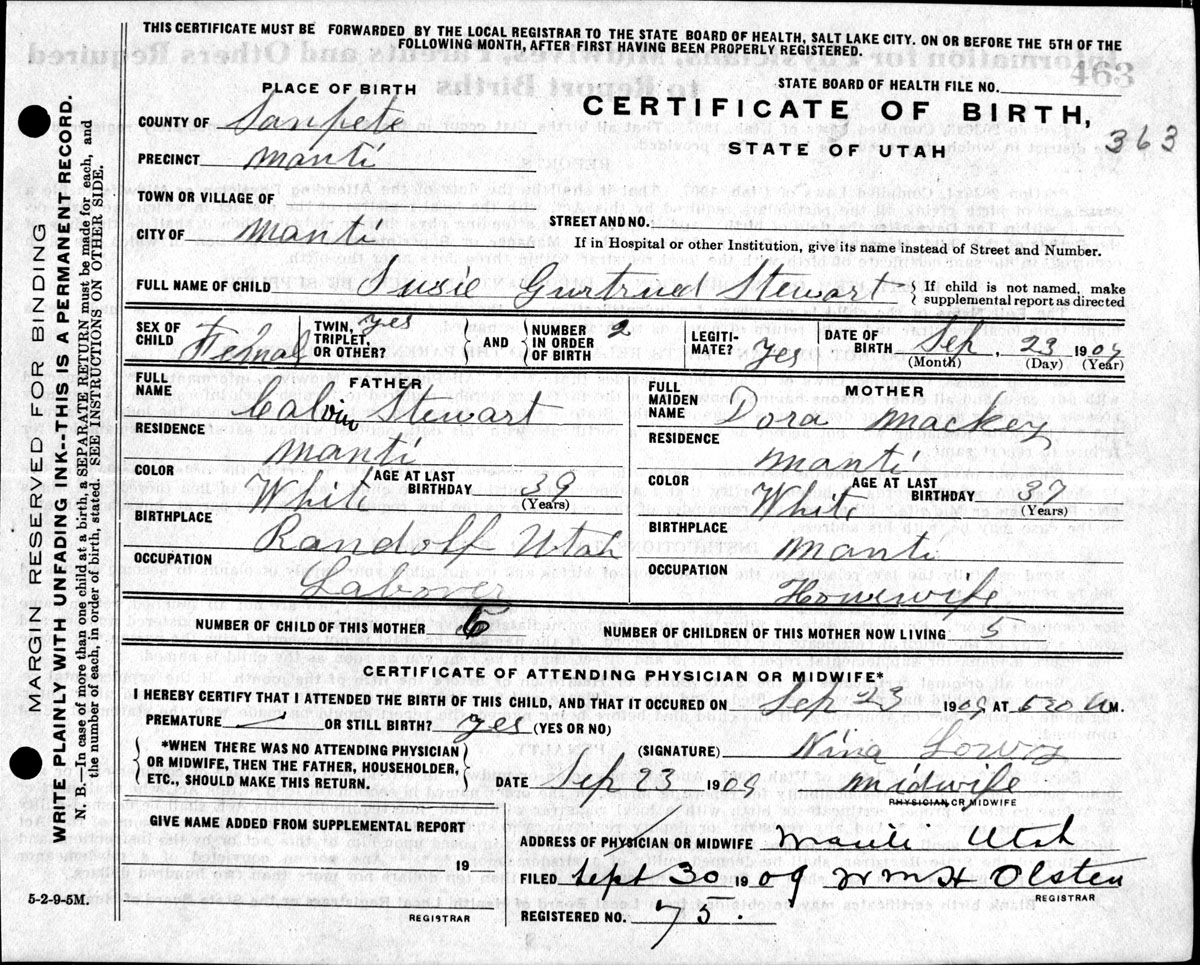 THIS CERTIFICATE MUST BE FORWARDED BY THE LOCAL REGISTRAR TO THE STATE BOARD OF HEALTH, SALT LAKE CITY, ON OR BEFORE THE 5TH OF THE
FOLLOWING MONTH, AFTER FIRST HAVING BEEN PROPERLY REGISTERED.
463
PLACE OF BIRTH
STATE BOARD OF HEALTH FILE NO.
CERTIFICATE OF BIRTH,
363
STATE OF UTAH
COUNTY OF Sanpete
PRECINCT Manti
TOWN OR VILLAGE OF
STREET AND NO.
CITY OF Manti
If in Hospital or other Institution, give its name instead of Street and Number.
FULL NAME OF CHILD Susie Gurtrued Stewart { If child is not named, make
supplemental report as directed
SEX OF CHILD Femal TWIN, TRIPLET, OR OTHER? yes } AND { NUMBER IN ORDER OF BIRTH 2 LEGITIMATE? Yes DATE OF BIRTH Sep, 23 1909
(Month) (Day) (Year)
FATHER
FULL NAME Calvin Stewart
RESIDENCE Manti
COLOR White AGE AT LAST BIRTHDAY 39 (Years)
BIRTHPLACE Randolf Utah
OCCUPATION Laborer
MOTHER
FULL MAIDEN NAME Dora Mackey
RESIDENCE Manti
COLOR White AGE AT LAST BIRTHDAY 37 (Years)
BIRTHPLACE Manti
OCCUPATION Housewife
NUMBER OF CHILD OF THIS MOTHER 6 NUMBER OF CHILDREN OF THIS MOTHER NOW LIVING 5
CERTIFICATE OF ATTENDING PHYSICIAN OR MIDWIFE*
I HEREBY CERTIFY THAT I ATTENDED THE BIRTH OF THIS CHILD, AND THAT IT OCCURED ON Sep 23 1909 AT 5 A M.
PREMATURE OR STILL BIRTH? yes (YES OR NO)
*WHEN THERE WAS NO ATTENDING PHYSICIAN
OR MIDWIFE, THEN THE FATHER, HOUSEHOLDER,
ETC., SHOULD MAKE THIS RETURN.
(SIGNATURE) Nina Lowry
DATE Sep 23 1909 Midwife
PHYSICIAN OR MIDWIFE
GIVE NAME ADDED FROM SUPPLEMENTAL REPORT
19
REGISTRAR
5-2-9-5M.
ADDRESS OF PHYSICIAN OR MIDWIFE Manti Utah
FILED Sept 30 1909 Wm H Olsten
REGISTRAR
REGISTERED NO. 73.
MARGIN RESERVED FOR BINDING
WRITE PLAINLY WITH UNFADING INK--THIS IS A PERMANENT RECORD.
N. B.—In case of more than one child at a birth, a SEPARATE RETURN must be made for each, and
the number of each, in order of birth, stated. SEE INSTRUCTIONS ON OTHER SIDE.